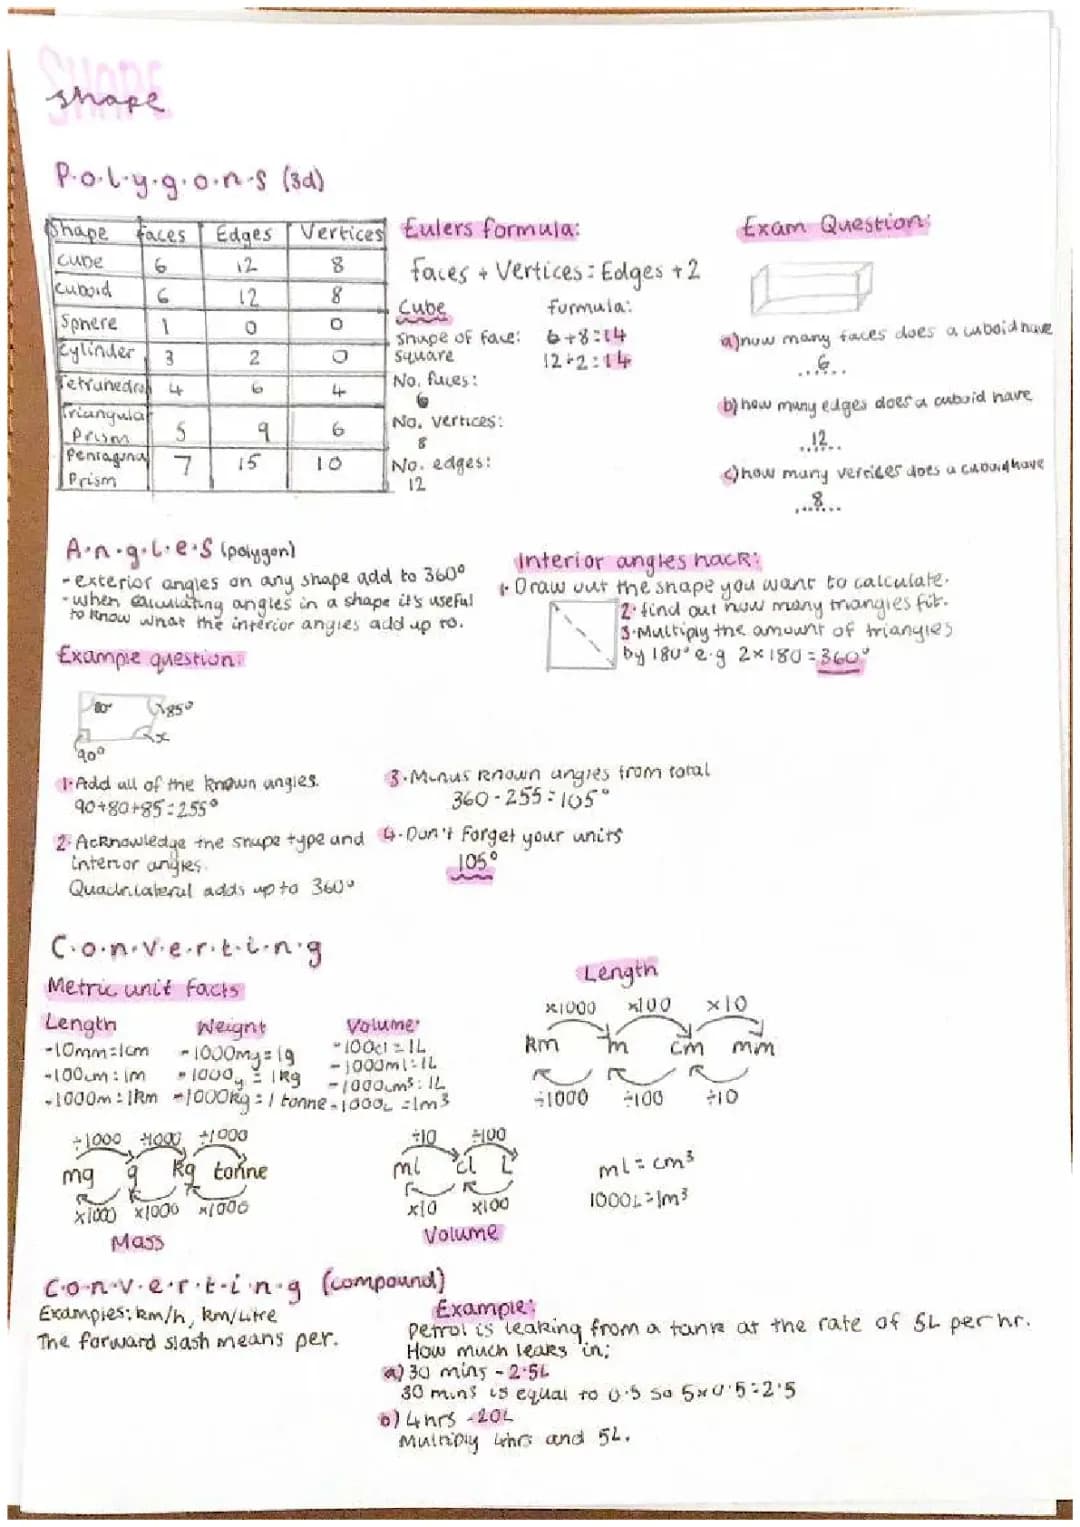 SHAPE
shape
P.o.l.y.g.o.n.s (3d)
Shape faces Edges Vertices
cube 6 12 8
cuboid 6 12 8
Sphere 1 0 0
Cylinder 3 2 0
Tetrahedron 4 6 4
Triangular Prism 5 9 6
Pentagonal Prism 7 15 10
Eulers formula:
faces + Vertices = Edges + 2
Cube
Shape of face:
square
No. faces:
6
No. vertices:
8
No. edges:
12
formula:
6+8=14
12+2=14
Exam Question:
a) how many faces does a cuboid have
..6..
b) how many edges does a cuboid have
..12..
c) how many vertices does a cuboid have
..8..
A.n.g.l.e.s (polygon)
- exterior angles on any shape add to 360°
- when calculating angles in a shape it's useful
to know what the interior angles add up to.
Interior angles hack:
1. Draw out the shape you want to calculate.
2. find out how many triangles fit.
3. Multiply the amount of triangles
by 180° e.g 2×180=360°
Example question:
80°
85°
x
90°
1. Add all of the known angles.
90+80+85=255°
2. Acknowledge the shape type and
interior angles.
Quadrilateral adds up to 360°
3. Minus known angles from total
360-255=105°
4. Don't forget your units
105°
C.o.n.v.e.r.t.i.n.g
Metric unit facts
Length
-10mm=1cm
-100cm=1m
-1000m=1km
Weight
-1000mg=1g
-1000g=1kg
-1000kg=1 tonne
Volume:
-100cl=1L
-1000ml=1L
-1000cm³=1L
-1000L=1m³
Length
×1000 ×100 ×10
km m cm mm
÷1000 ÷100 ÷10
÷1000 ÷1000 ÷1000
mg g kg tonne
×1000 ×1000 ×1000
Mass
÷10 ÷100
ml cl L
×10 ×100
Volume
ml=cm³
1000L=1m³
C.o.n.v.e.r.t.i.n.g (compound)
Examples: km/h, km/litre
The forward slash means per.
Example:
Petrol is leaking from a tank at the rate of 5L per hr.
How much leaks in;
a) 30 mins - 2.5L
30 mins is equal to 0.5 so 5×0.5=2.5
b) 4hrs - 20L
Multiply 4hrs and 5L.